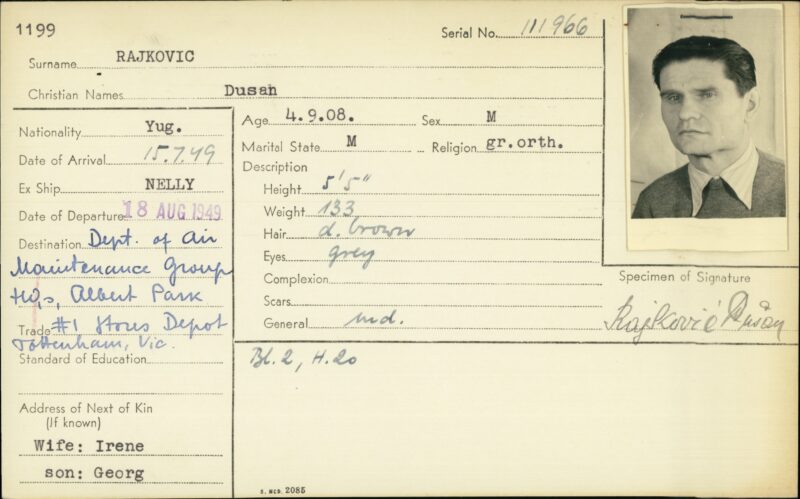 1199
Serial No. 111966
Surname RAJKOVIC
Christian Names Dusan
Nationality Yug.
Date of Arrival 15.7.49
Ex Ship NELLY
Date of Departure 18 AUG 1949
Destination Dept. of Air
Maintenance Group
HQs, Albert Park
Trade #1 Stores Depot
Tottenham, Vic.
Standard of Education
Address of Next of Kin
(If known)
Wife: Irene
son: Georg
Age 4.9.08. Sex M
Marital State M Religion gr.orth.
Description
Height 5'5"
Weight 133
Hair d. brown
Eyes grey
Complexion
Scars
General md.
Bl.2, H.20
Specimen of Signature
Rajković Dušan
S. MCD. 2085